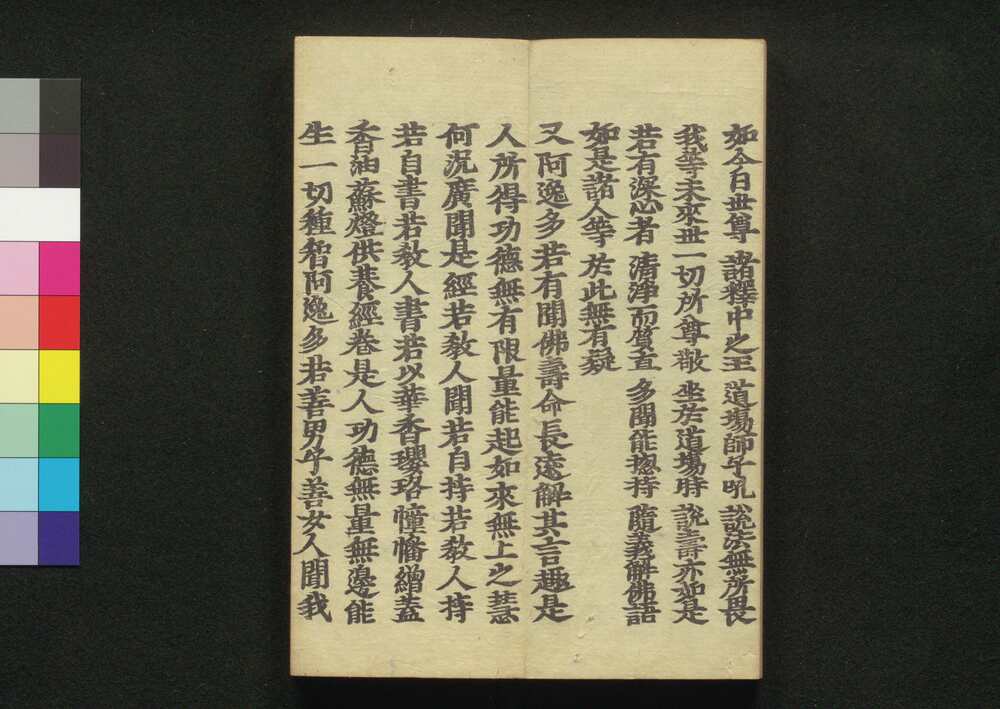 如今日世尊 諸釋中之王 道場師子吼 說法無所畏
我等未來世 一切所尊敬 坐於道場時 說壽亦如是
若有深心者 清淨而質直 多聞能捴持 隨義解佛語
如是諸人等 於此無有疑
又阿逸多若有聞佛壽命長遠解其言趣是
人所得功德無有限量能起如來無上之慧
何況廣聞是經若教人聞若自持若教人持
若自書若教人書若以華香瓔珞幢幡繒蓋
香油蘇燈供養經卷是人功德無量無邊能
生一切種智阿逸多若善男子善女人聞我